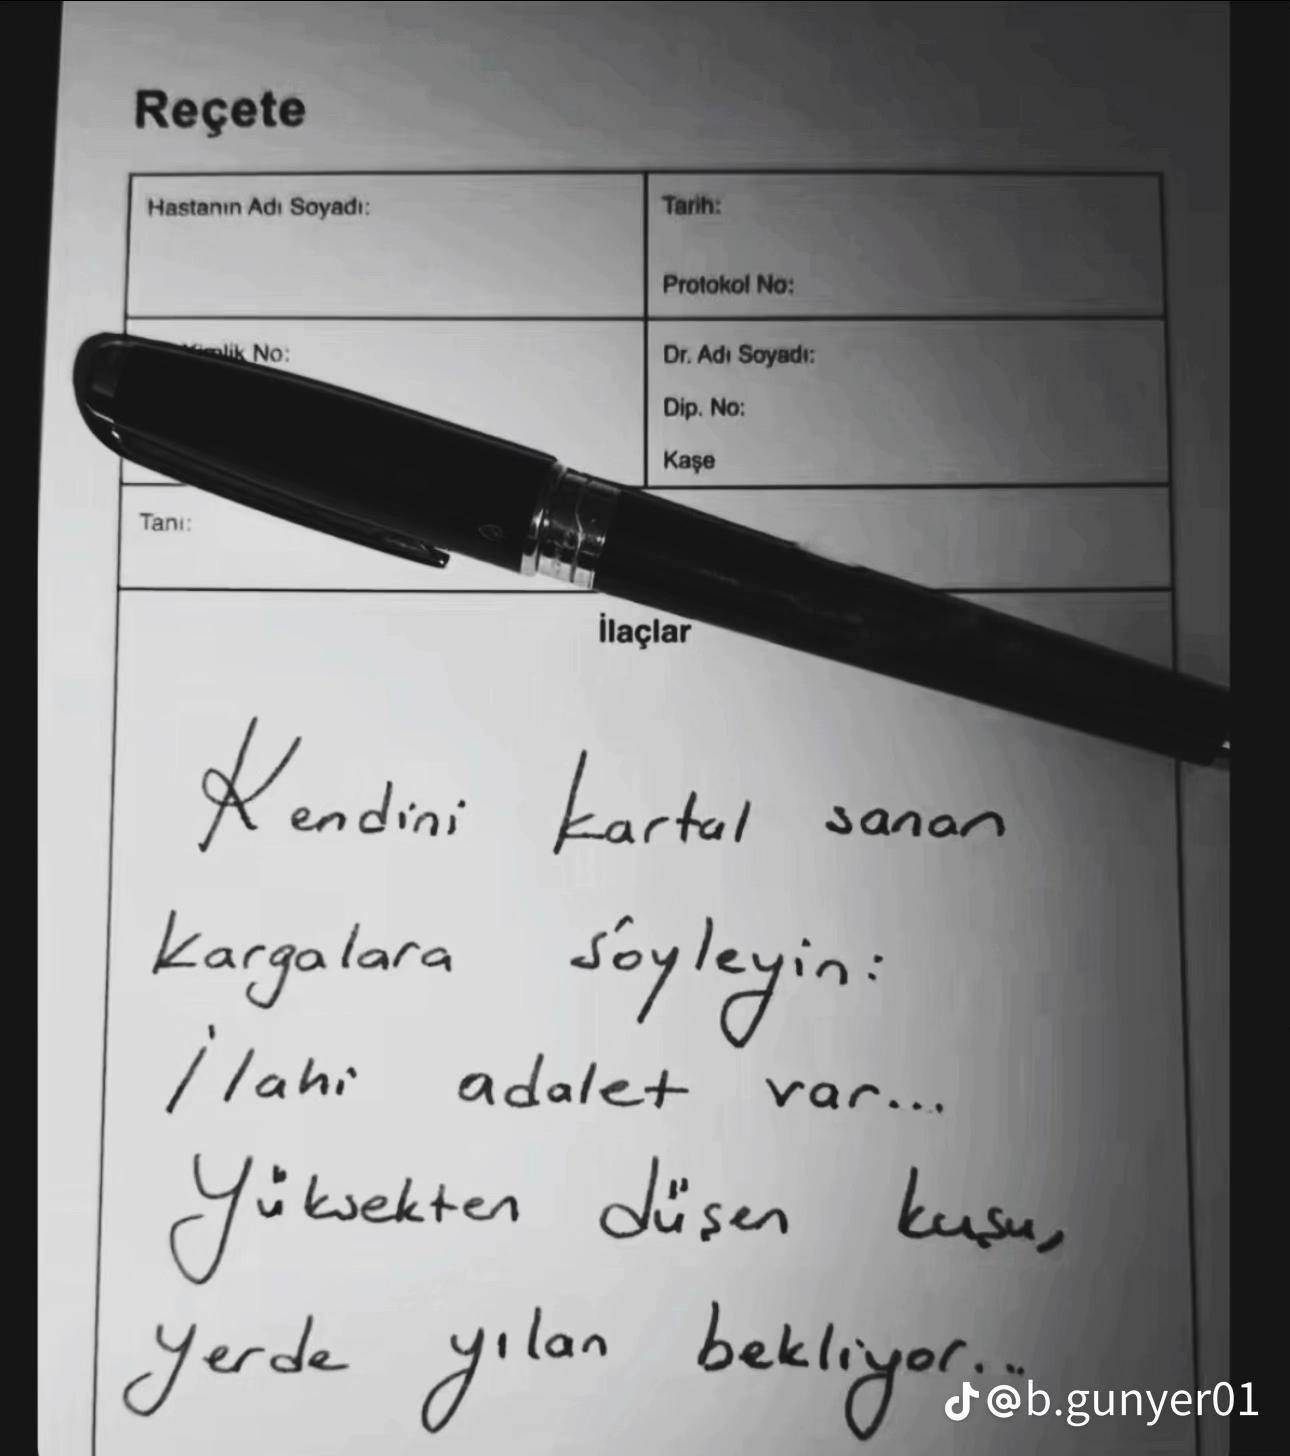 Reçete
Hastanın Adı Soyadı:
Tarih:
Protokol No:
Kimlik No:
Dr. Adı Soyadı:
Dip. No:
Kaşe
Tanı:
İlaçlar
Kendini kartal sanan
kargalara söyleyin:
İlahi adalet var...
Yüksekten düşen kuşu,
yerde yılan bekliyor...
@b.gunyer01